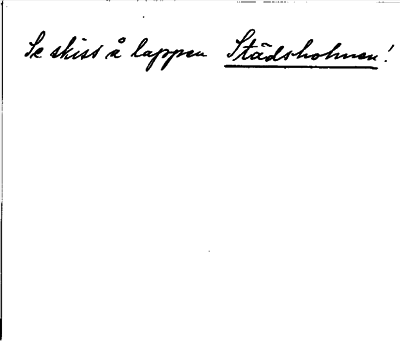 Se skiss å lappen Städsholmen!